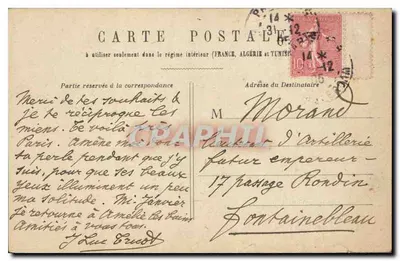 CARTE POSTALE
à utiliser seulement dans le régime intérieur (FRANCE, ALGÉRIE et TUNISIE
14
31 12
14
12
10
Partie réservée à la correspondance
Adresse du Destinataire
Merci de tes souhaits &
je te réciproque les
miens. Te voilà
Paris. Amène moi
ta perle pendant que j'y
suis, pour que ses beaux
yeux illuminent un peu
ma solitude. Mi-Janvier
je retourne à Amélie les Bains
Amitiés à vous tous
J Luc
M Morand
d'Artillerie
futur empereur
17 passage Rondin
Fontainebleau
PRCARTES